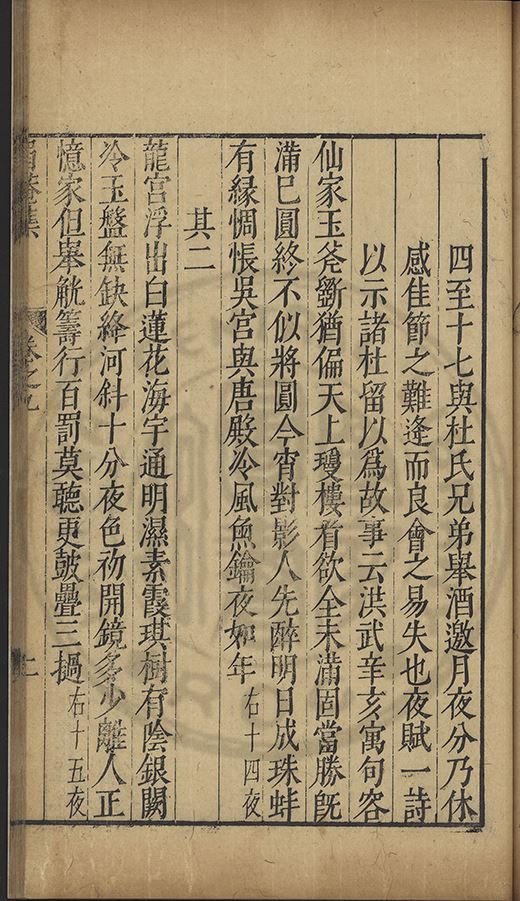 四至十七與杜氏兄弟舉酒邀月夜分乃休
感佳節之難逢而良會之易失也夜賦一詩
以示諸杜留以爲故事云洪武辛亥寓句容
仙家玉斧斵猶偏天上瓊樓看欲全未滿固當勝旣
滿已圓終不似將圓今宵對影人先醉明日成珠蚌
有緣惆悵吳宮與唐殿冷風魚鑰夜如年右十四夜
其二
龍宮浮出白蓮花海宇通明濕素霞琪樹有陰銀闕
冷玉盤無缺絳河斜十分夜色初開鏡多少離人正
憶家但舉觥籌行百罰莫聽更鼓疊三撾右十五夜
卷之九